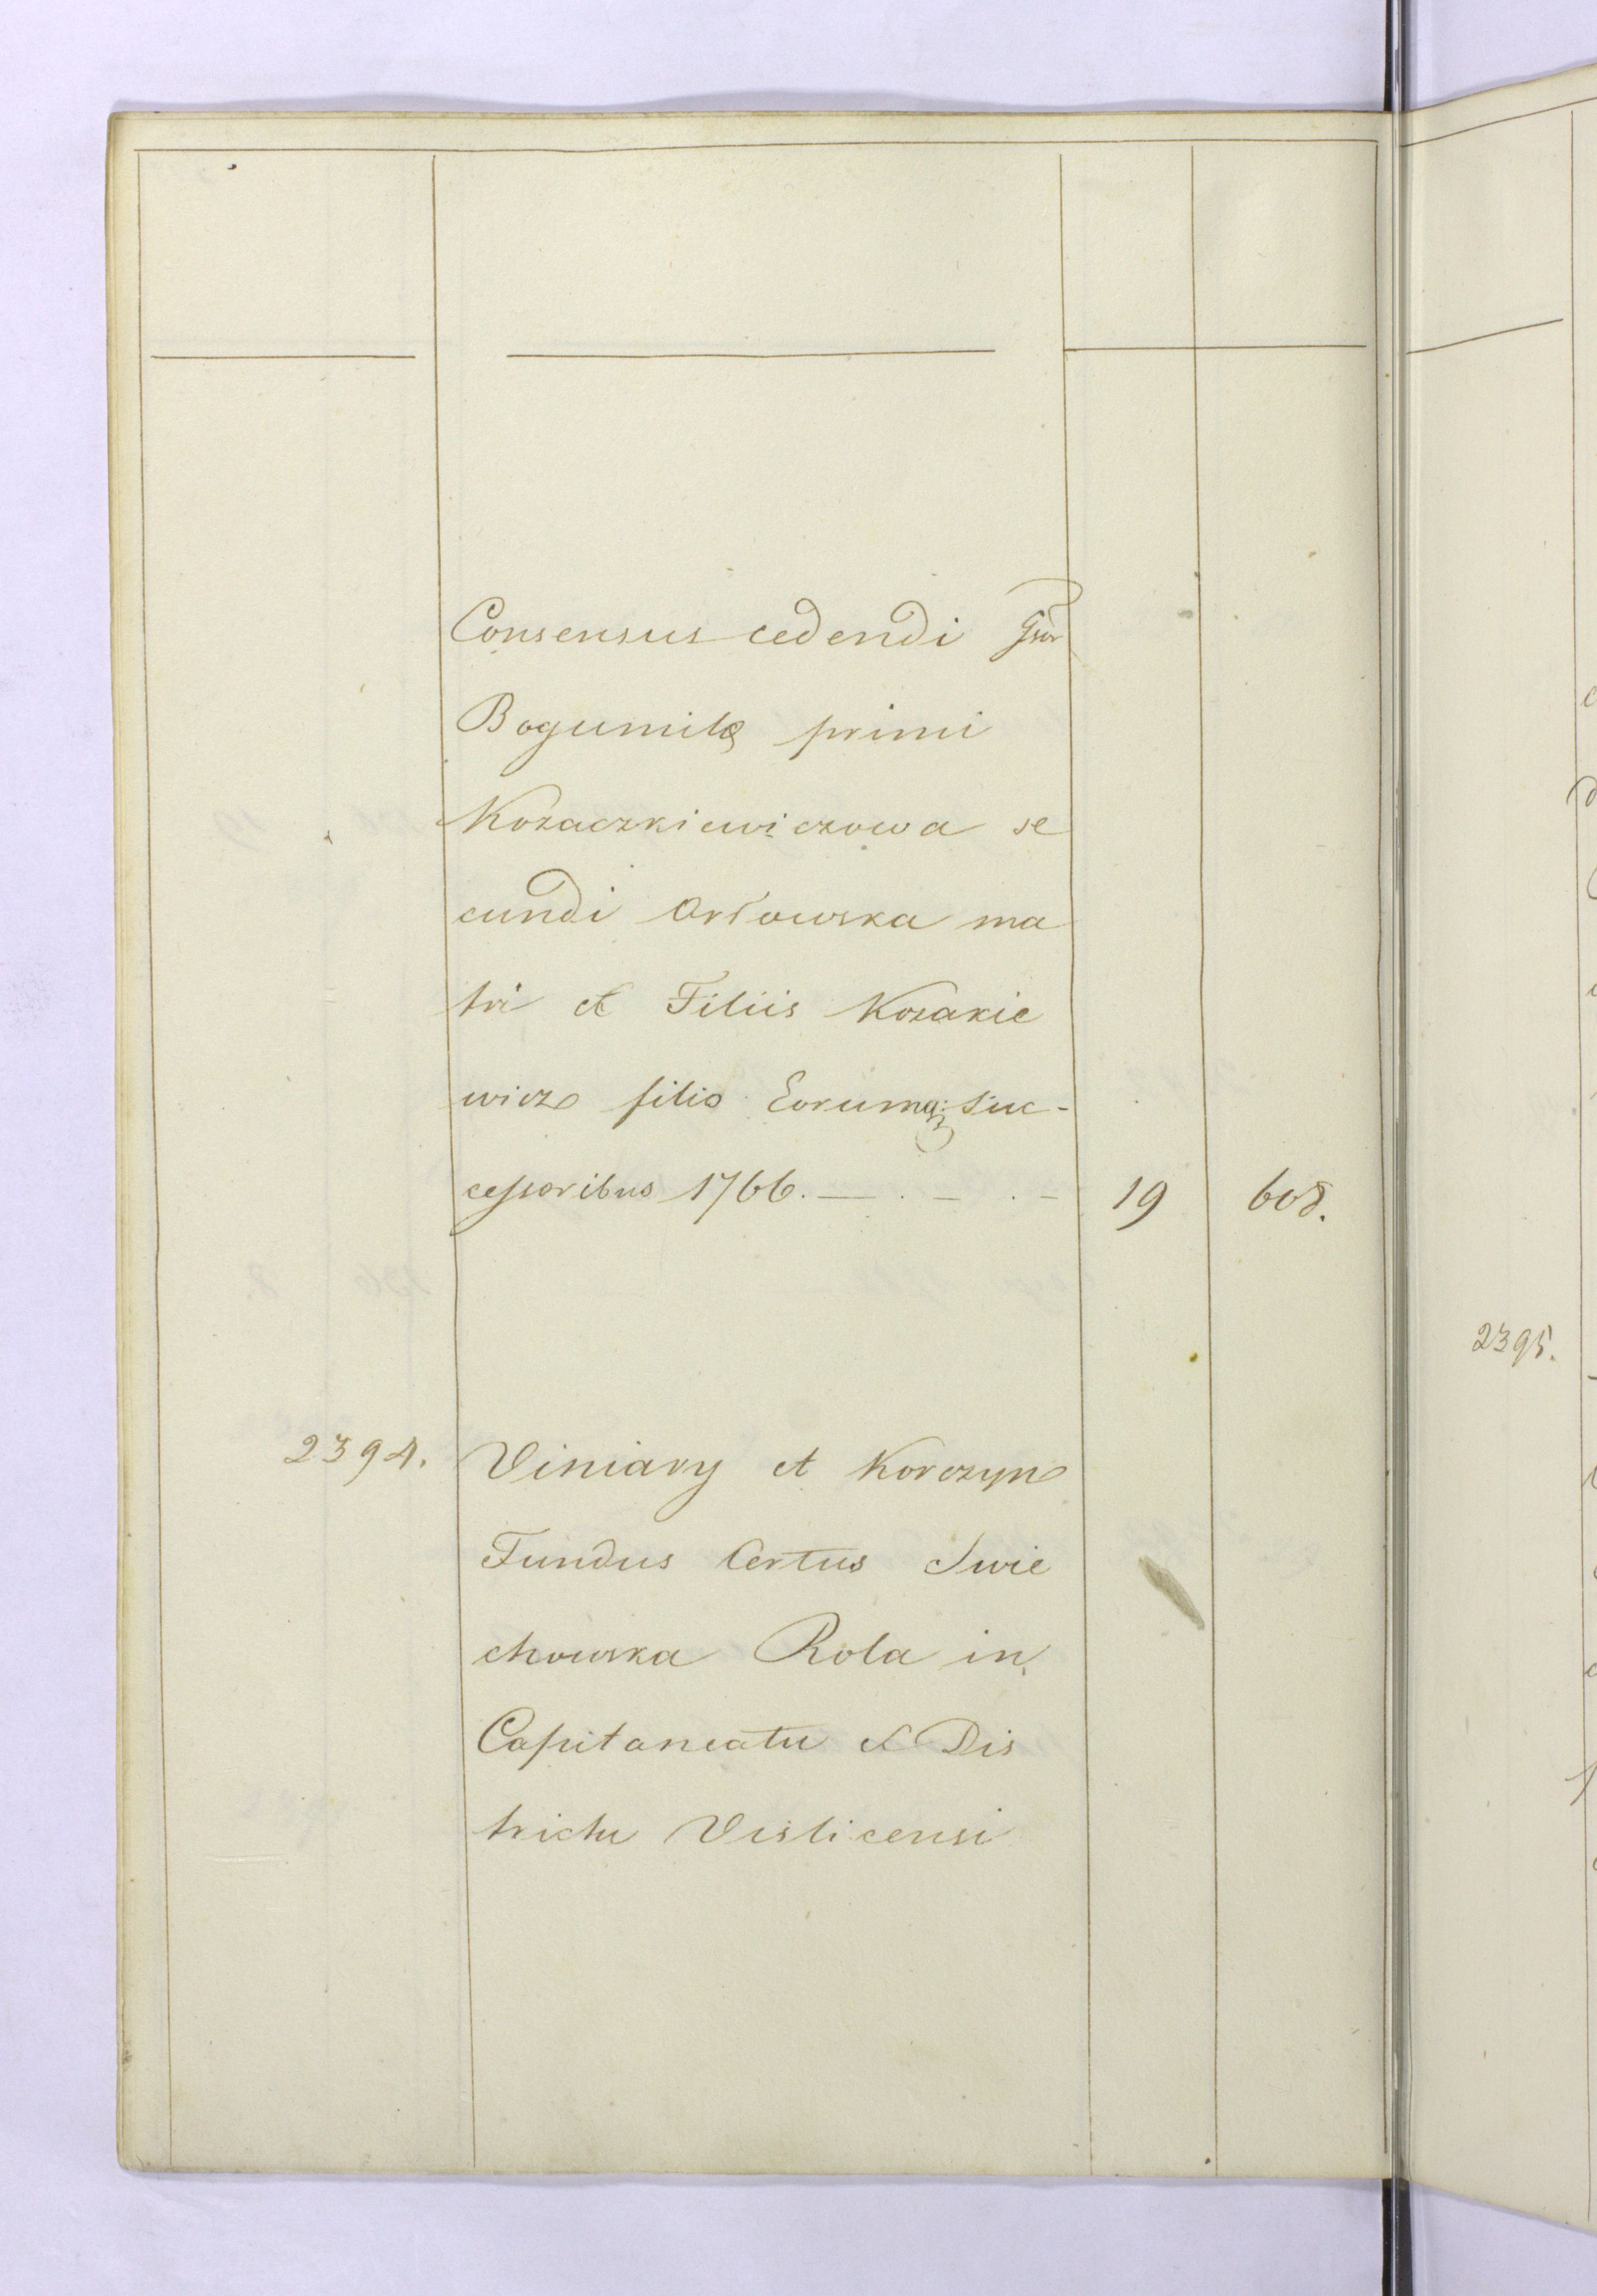 Consensus cedendi Gsor
Bogumilæ primi
Kozaczkiewiczowa se
cundi Orłowska ma
tri et Filiis Kozakie
wicz filio Eorumq; suc-
cessoribus 1766. — . — . — 19 608.
2394. Viniary et Korczyn
Fundus Certus Swie
chowska Rola in
Capitaneatu et Dis
trictu Vislicensi
2395.